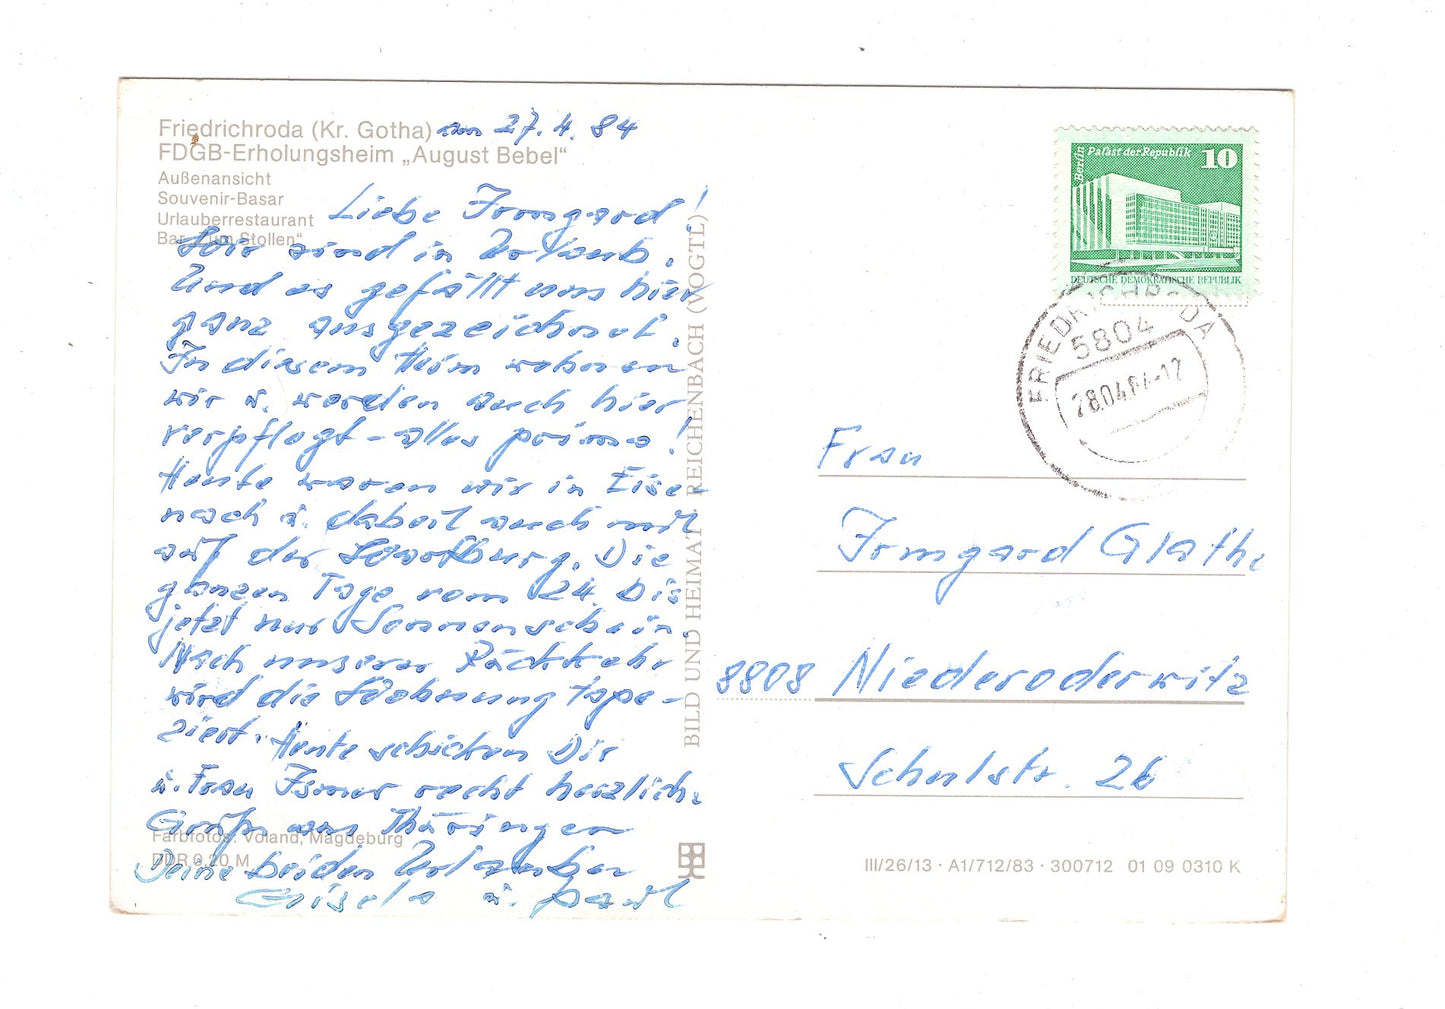 Friedrichroda (Kr. Gotha) am 27. 4. 84
FDGB-Erholungsheim „August Bebel“
Außenansicht
Souvenir-Basar
Urlauberrestaurant
Bar „Zum Stollen“
Liebe Irmgard!
Wir sind in Urlaub.
Und es gefällt uns hier
ganz ausgezeichnet.
In diesem Heim wohnen
wir u. werden auch hier
verpflegt - alles prima!
Heute waren wir in Eise-
nach u. dabei auch mit
auf der Wartburg. Die
ganzen Tage vom 24. bis
jetzt nur Sonnenschein.
Nach unserer Rückkehr
wird die Wohnung tape-
ziert. Heute schicken Dir
u. Frau recht herzliche
Grüße aus Thüringen
Deine beiden Urlauber
Gisela u. Paul
Farbfotos: Voland, Magdeburg
DDR 0,20 M
BILD UND HEIMAT · REICHENBACH (VOGTL)
Berlin Palast der Republik 10
DEUTSCHE DEMOKRATISCHE REPUBLIK
FRIEDRICHRODA
5804
28.04.84-12
Frau
Irmgard Glathe
8808 Niederoderwitz
Schulstr. 26
III/26/13 · A1/712/83 · 300712 01 09 0310 K